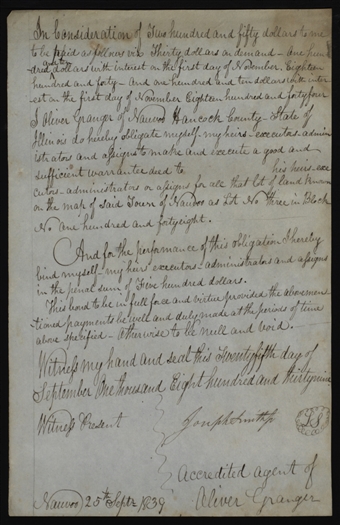 In Consideration of Two hundred and fifty dollars to me
to be paid as follows viz Thirty dollars on demand – one hun-
dred dollars with interest on the first day of November, Eighteen
hundred and forty – And one hundred and ten dollars with inter-
est on the first day of November Eighteen hundred and forty four
I Oliver Granger of Nauvoo Hancock County – State of
Illinois do hereby Obligate myself – my heirs – executors – admin-
istrators and assigns to make and execute a good and
sufficient warrantee deed to his heirs – exe
cutors – administrators or assigns for all that lot of land Known
on the map of said Town of Nauvoo as Lot No three in Block
No one hundred and forty eight.
And for the performance of this obligation I hereby
bind myself – my heirs executors – administrators and assigns
in the penal sum of Five hundred dollars.
This bond to be in full force and virtue provided the above men-
tioned payments be well and duly made at the periods of time
above specified – Otherwise to be null and void.
Witness my hand and seal this Twenty fifth day of
September One thousand Eight hundred and thirty nine
Witness Present
Joseph Smith Jr
LS
Accredited agent of
Oliver Granger
Nauvoo 25th Septr 1839